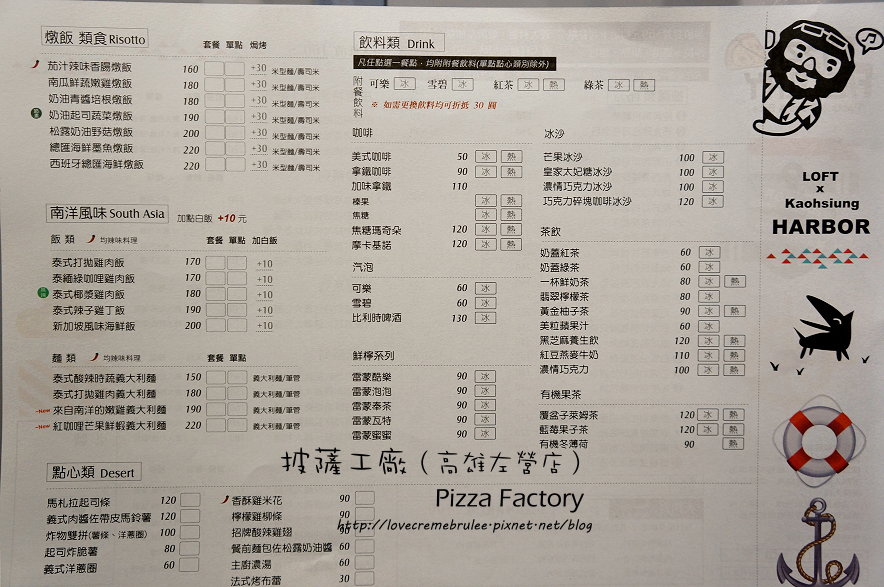 燉飯 類食 Risotto
套餐 單點 焗烤
茄汁辣味香腸燉飯 160 +30 米型麵/壽司米
南瓜鮮蔬嫩雞燉飯 180 +30 米型麵/壽司米
奶油青醬培根燉飯 180 +30 米型麵/壽司米
奶油起司蔬菜燉飯 190 +30 米型麵/壽司米
松露奶油野菇燉飯 200 +30 米型麵/壽司米
總匯海鮮墨魚燉飯 220 +30 米型麵/壽司米
西班牙總匯海鮮燉飯 220 +30 米型麵/壽司米
南洋風味 South Asia 加點白飯 +10 元
飯 類 均辣味料理 套餐 單點 加白飯
泰式打拋雞肉飯 170 +10
泰緬綠咖哩雞肉飯 170 +10
泰式椰漿雞肉飯 180 +10
泰式辣子雞丁飯 190 +10
新加坡風味海鮮飯 200 +10
麵 類 均辣味料理 套餐 單點
泰式酸辣時蔬義大利麵 150 義大利麵/筆管
泰式打拋雞肉義大利麵 180 義大利麵/筆管
New 來自南洋的嫩雞義大利麵 190 義大利麵/筆管
New 紅咖哩芒果鮮蝦義大利麵 220 義大利麵/筆管
點心類 Desert
馬札拉起司條 120
義式肉醬佐帶皮馬鈴薯 120
炸物雙拼(薯條、洋蔥圈) 100
起司炸脆薯 80
義式洋蔥圈 60
香酥雞米花 90
檸檬雞柳條 90
招牌酸辣雞翅 90
餐前麵包佐松露奶油醬 60
主廚濃湯 60
法式烤布蕾 30
飲料類 Drink
凡任點選一餐點，均附附餐飲料(單點點心類別除外)
附餐飲料
可樂 冰 雪碧 冰 紅茶 冰 熱 綠茶 冰 熱
※ 如需更換飲料均可折抵 30 圓
咖啡
美式咖啡 50 冰 熱
拿鐵咖啡 90 冰 熱
加味拿鐵 110
榛果 冰 熱
焦糖 冰 熱
焦糖瑪奇朵 120 冰 熱
摩卡基諾 120 冰 熱
汽泡
可樂 60 冰
雪碧 60 冰
比利時啤酒 130 冰
鮮檸系列
雷蒙酷樂 90 冰
雷蒙泡泡 90 冰
雷蒙奉茶 90 冰
雷蒙瓦特 90 冰
雷蒙蜜蜜 90 冰
冰沙
芒果冰沙 100 冰
皇家太妃糖冰沙 100 冰
濃情巧克力冰沙 100 冰
巧克力碎塊咖啡冰沙 120 冰
茶飲
奶蓋紅茶 60 冰
奶蓋綠茶 60 冰
一杯鮮奶茶 80 冰 熱
翡翠檸檬茶 80 冰
黃金柚子茶 90 冰 熱
美粒蘋果汁 60 冰
黑芝麻養生飲 120 冰 熱
紅豆燕麥牛奶 110 冰 熱
濃情巧克力 100 冰 熱
有機果茶
覆盆子萊姆茶 120 冰 熱
藍莓果子茶 120 冰 熱
有機冬薄荷 90 熱
LOFT
x
Kaohsiung
HARBOR
披薩工廠 (高雄左營店)
Pizza Factory
http://lovecremebrulee.pixnet.net/blog